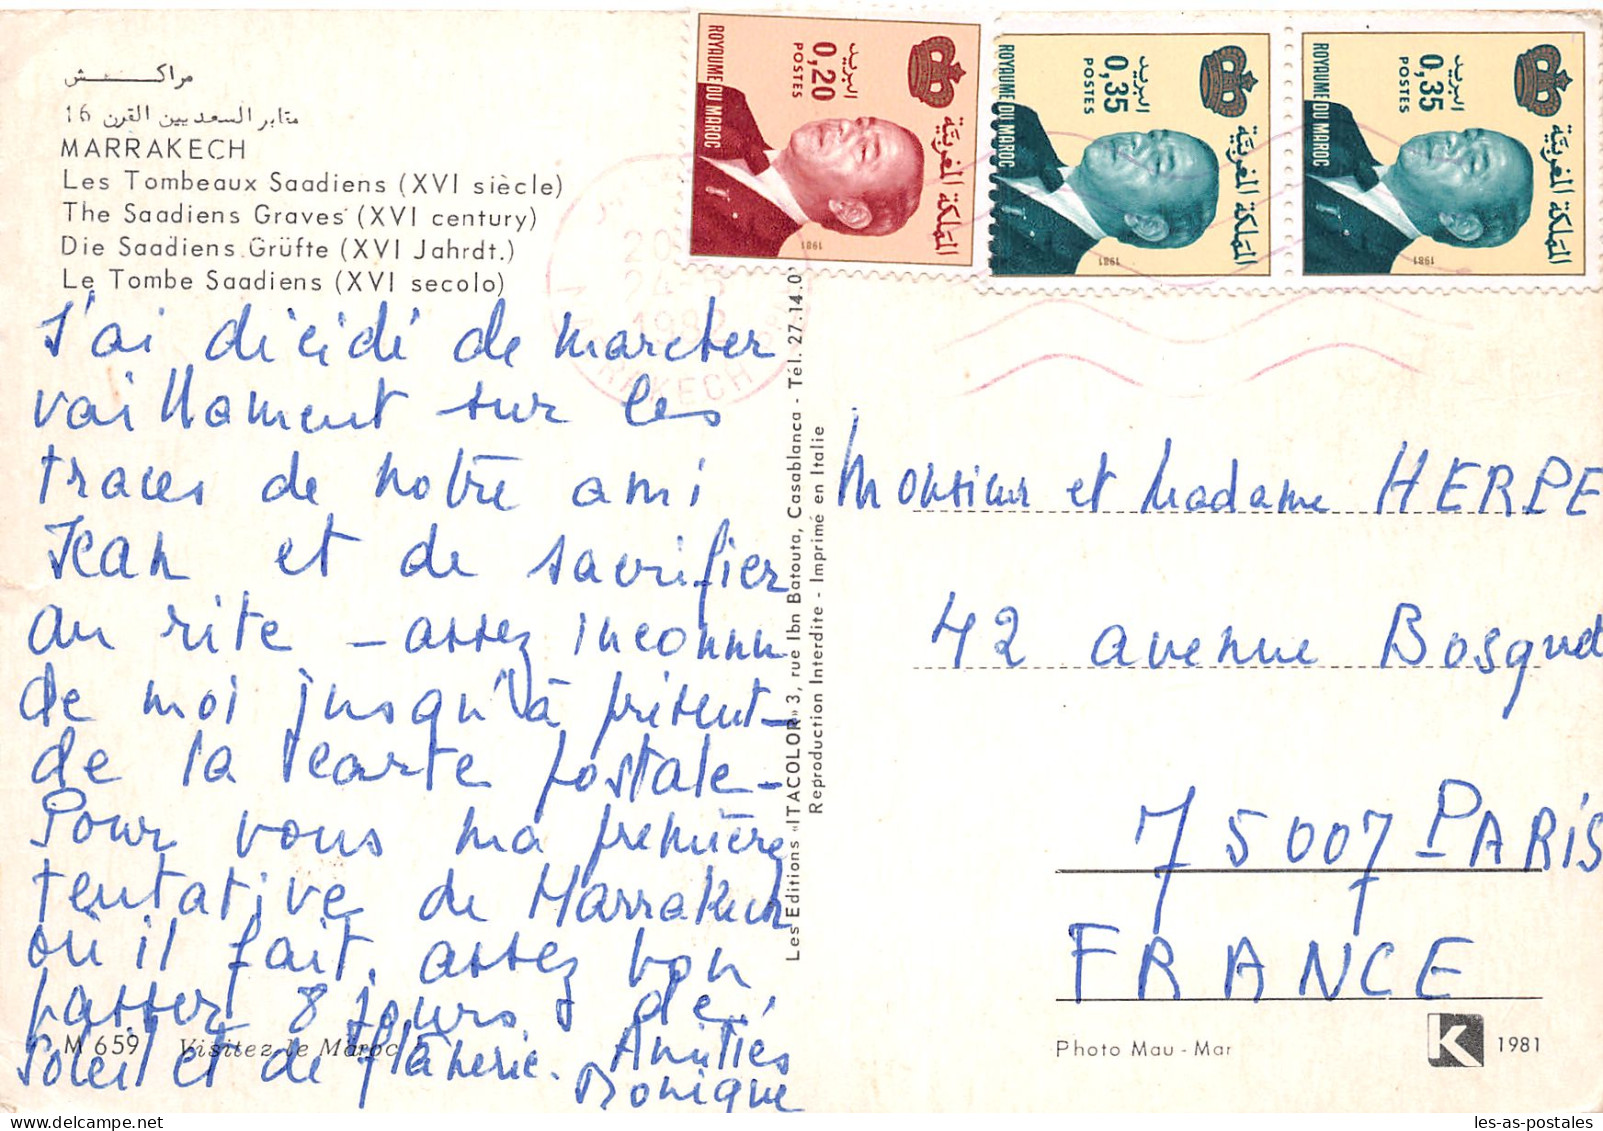 مراكـــــش
مقابر السعديين القرن 16
MARRAKECH
Les Tombeaux Saadiens (XVI siècle)
The Saadiens Graves (XVI century)
Die Saadiens Grüfte (XVI Jahrdt.)
Le Tombe Saadiens (XVI secolo)
J'ai décidé de marcher
vaillament sur les
traces de notre ami
Jean et de sacrifier
au rite – assez inconnu
de moi jusqu'à présent –
de la carte postale –
Pour vous ma première
tentative de Marrakech
où il fait assez bon
passer 8 jours de
soleil et de flânerie. Amitiés
Monique
M 659 Visitez le Maroc
ROYAUME DU MAROC
0,20
POSTES
البريد
المملكة المغربية
1981
ROYAUME DU MAROC
0,35
POSTES
البريد
المملكة المغربية
1981
ROYAUME DU MAROC
0,35
POSTES
البريد
المملكة المغربية
1981
1982
MARRAKECH
Les Editions «ITACOLOR» 3, rue Ibn Batouta, Casablanca - Tél. 27.14.0
Reproduction Interdite - Imprimé en Italie
Monsieur et Madame HERPE
42 avenue Bosquet
75007 PARIS
FRANCE
Photo Mau - Mar
K 1981
les-as-postales.com